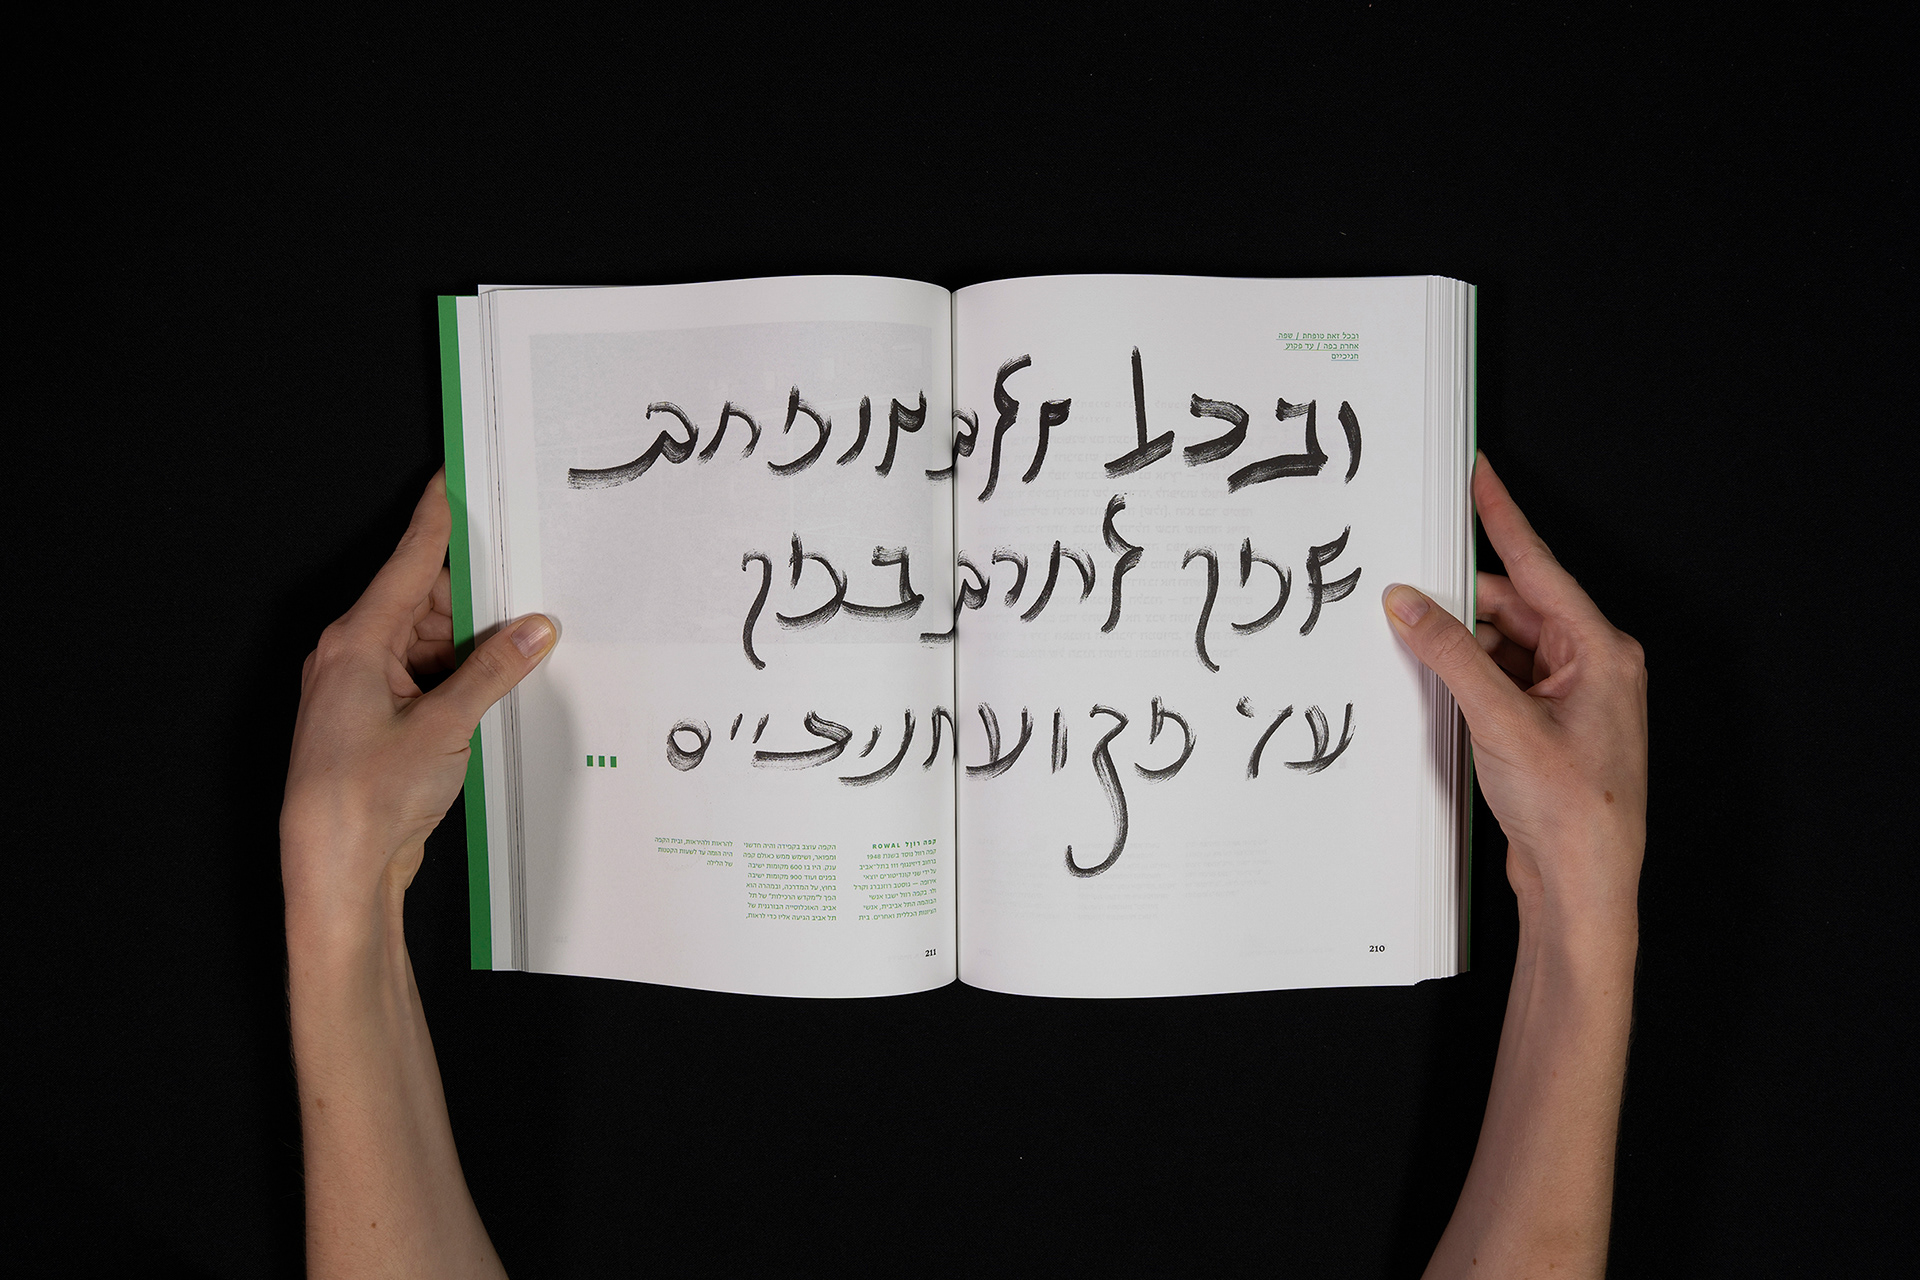 ובכל זאת טופחת / שפה
אחרת בפה / עד פקוע
חניכיים
ובכל זאת טופחת
שפה אחרת בפה
עד פקוע חניכיים
קפה רוול ROWAL
קפה רוול נוסד בשנת 1948
ברחוב דיזינגוף 111 בתל־אביב
על ידי שני קונדיטורים יוצאי
אירופה — גוסטב רוזנברג וקרל
ולר. בקפה רוול ישבו אנשי
הבוהמה התל אביבית, אנשי
העיתונות הכללית ואחרים. בית
הקפה עוצב בקפידה והיה חדשני
ומפואר, ושימש ממש כאולם קפה
ענק. היו בו 600 מקומות ישיבה
בפנים ועוד 900 מקומות ישיבה
בחוץ, על המדרכה, ובמהרה הוא
הפך ל"מקדש הרכילות" של תל
אביב. האוכלוסייה הבורגנית של
תל אביב הגיעה אליו כדי לראות,
להראות ולהיראות, ובית הקפה
היה הומה עד לשעות הקטנות
של הלילה
210
211